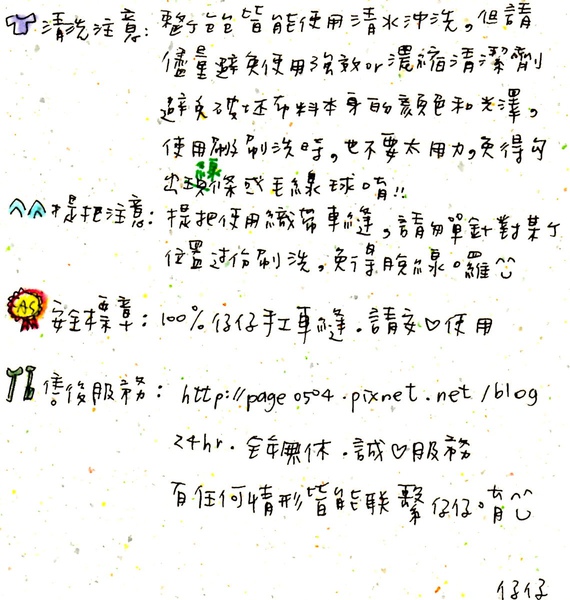 清洗注意：整個包皆能使用清水沖洗，但請
儘量避免使用強效or濃縮清潔劑
避免破坏布料本身的顏色和光澤，
使用刷刷洗時，也不要太用力，免得勾
出線條或毛線球唷!!
提把注意：提把使用織帶車縫，請勿單針對某个
位置过份刷洗，免得脫線囉
AS
安全標章：100%仔仔手工車縫．請安♡使用
售後服務：http://page0504.pixnet.net/blog
24hr．全年無休．誠♡服務
有任何情形皆能联繫仔仔唷
仔仔